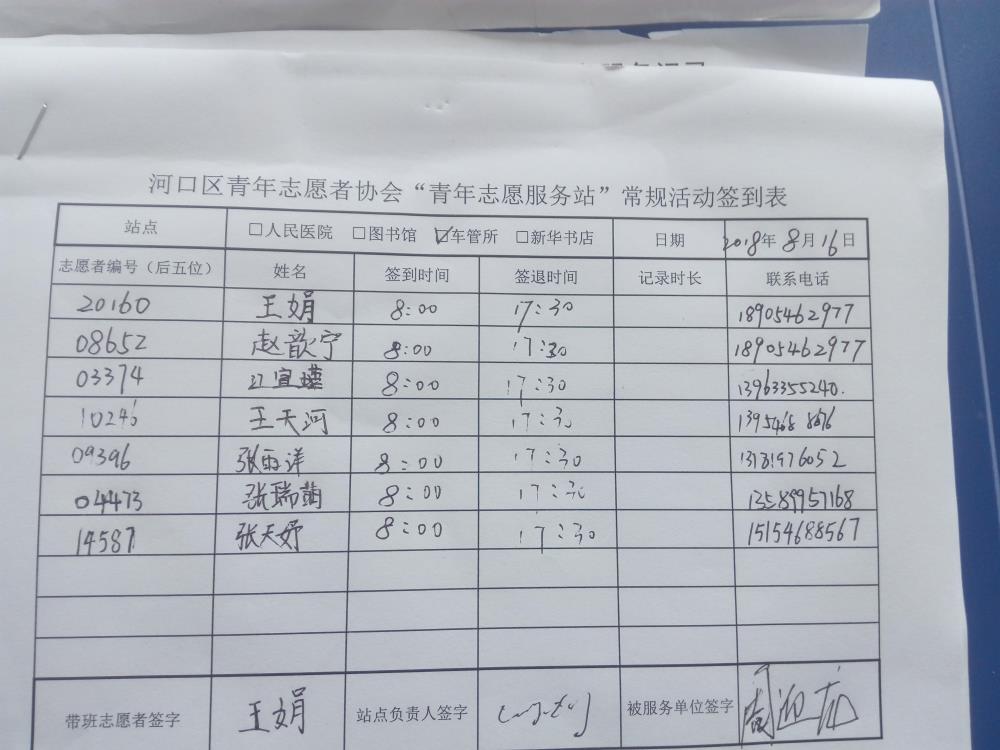 河口区青年志愿者协会“青年志愿服务站”常规活动签到表
站点 □人民医院 □图书馆 ☑车管所 □新华书店 日期 2018年8月16日
志愿者编号（后五位） 姓名 签到时间 签退时间 记录时长 联系电话
20160 王娟 8:00 17:30 18905462977
08652 赵歆宁 8:00 17:30 18905462977
03374 8:00 17:30 13963355240.
10246 王天河 8:00 17:30
09396 张雨洋 8:00 17:30
04473 张瑞菊 8:00 17:30 13589957168
14587 张天妤 8:00 17:30 15154688567
带班志愿者签字 王娟 站点负责人签字 被服务单位签字